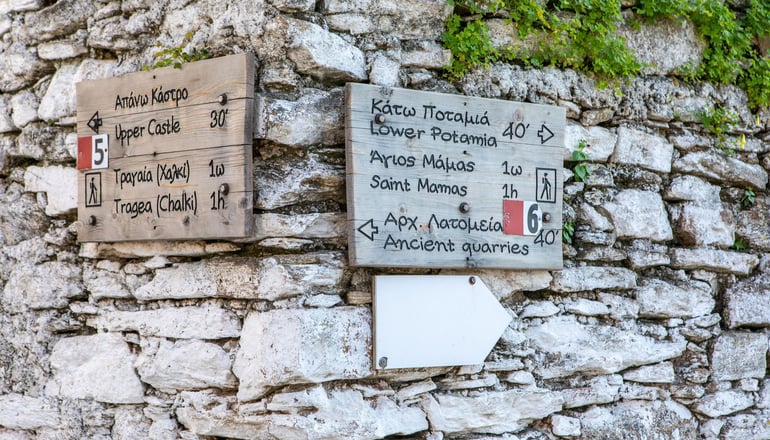 Απάνω Κάστρο
Upper Castle 30'
5
Τραγαία (Χαλκί) 1ω
Tragea (Chalki) 1h
Κάτω Ποταμιά
Lower Potamia 40'
Άγιος Μάμας 1ω
Saint Mamas 1h
6
Αρχ. Λατομεία
Ancient quarries 40'